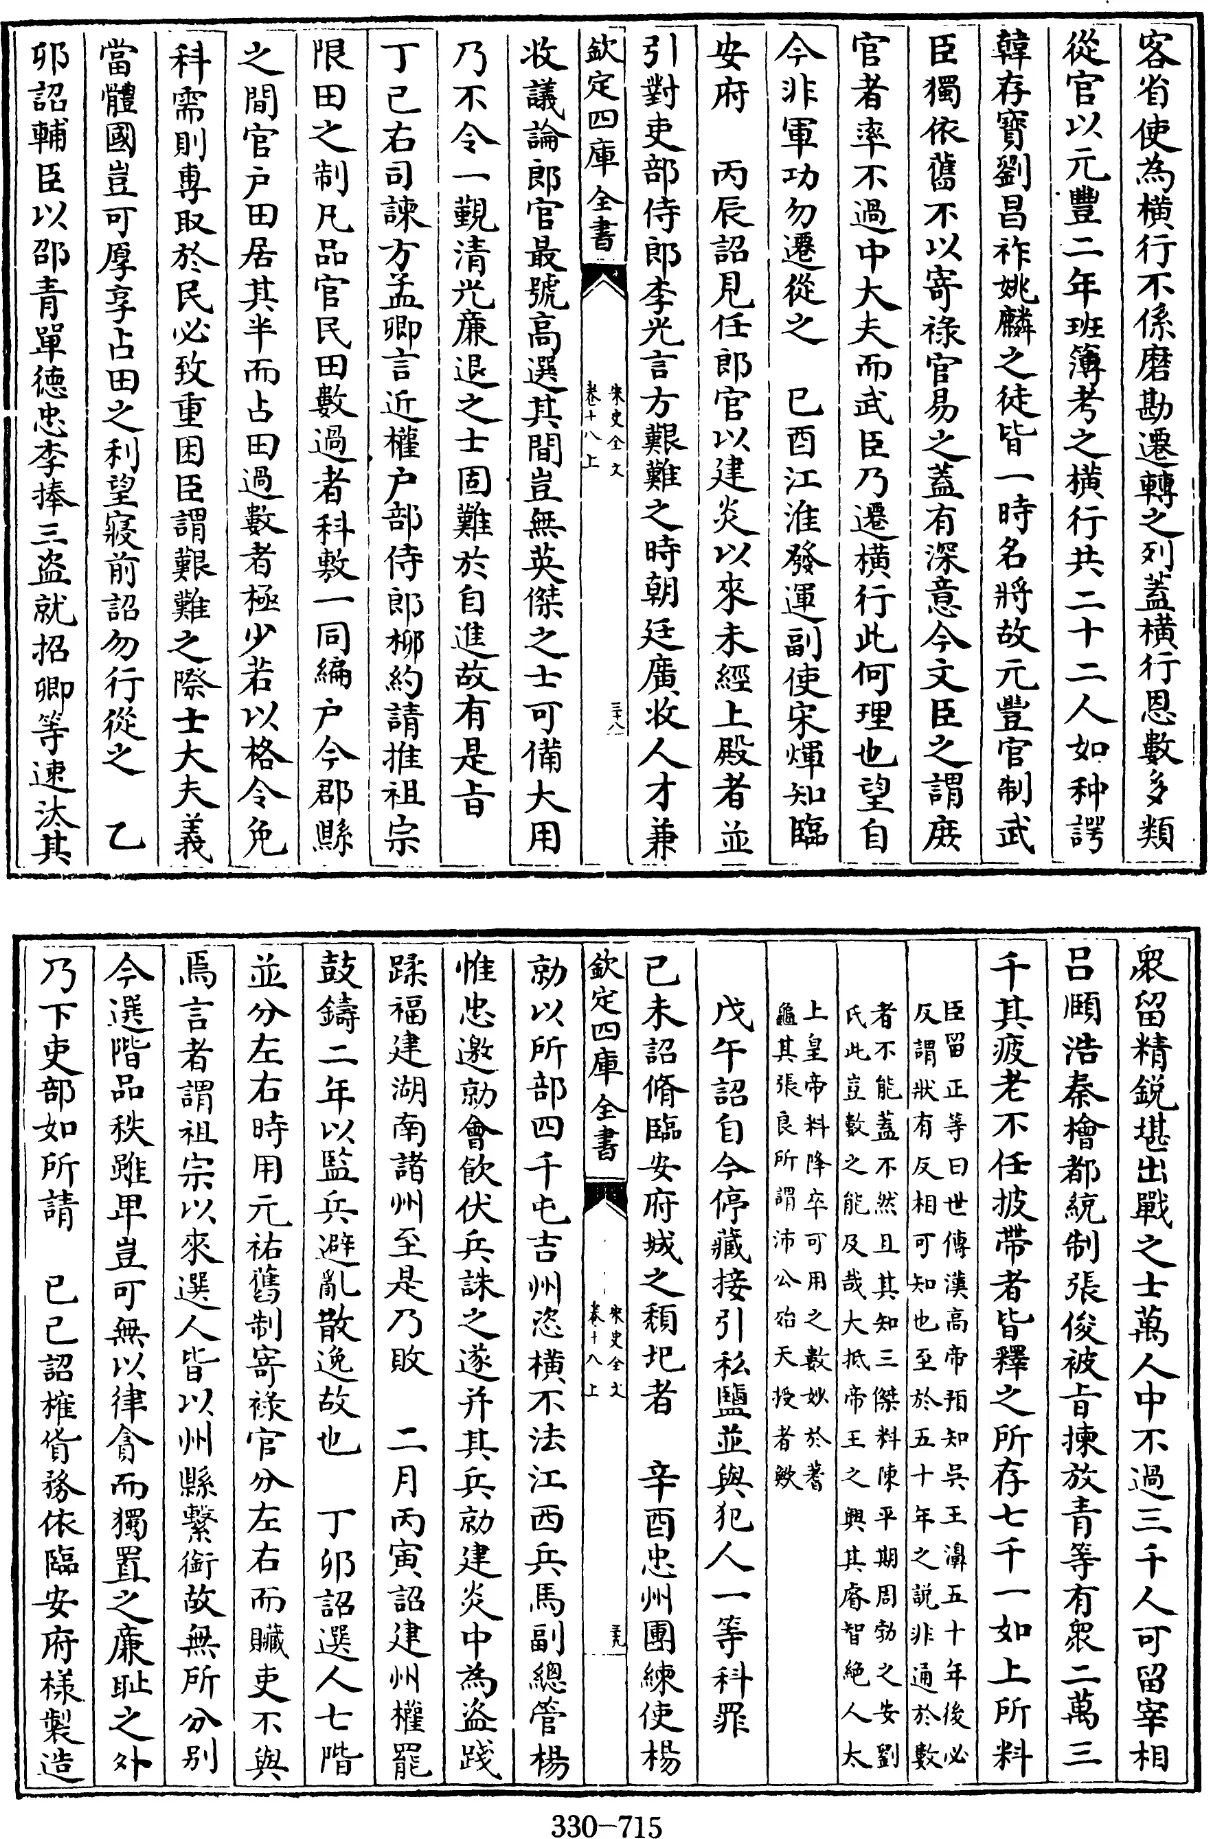 客省使為横行不係磨勘遷轉之列蓋横行恩數多類
從官以元豐二年班簿考之横行共二十二人如种諤
韓存寳劉昌祚姚麟之徒皆一時名將故元豐官制武
臣獨依舊不以寄祿官易之蓋有深意今文臣之謂庶
官者率不過中大夫而武臣乃遷横行此何理也望自
今非軍功勿遷從之　己酉江淮發運副使宋煇知臨
安府　丙辰詔見任郎官以建炎以來未經上殿者並
引對吏部侍郎李光言方艱難之時朝廷廣收人才兼
欽定四庫全書
宋史全文
卷十八上
三十八
收議論郎官最號高選其間豈無英傑之士可備大用
乃不令一覲清光廉退之士固難於自進故有是㫖
丁己右司諫方孟卿言近權户部侍郎柳約請推祖宗
限田之制凡品官民田數過者科敷一同編户今郡縣
之間官户田居其半而占田過數者極少若以格令免
科需則專取於民必致重困臣謂艱難之際士大夫義
當體國豈可厚享占田之利望寢前詔勿行從之　乙
卯詔輔臣以邵青單徳忠李捧三盗就招卿等速汰其
衆留精鋭堪出戰之士萬人中不過三千人可留宰相
吕頤浩秦檜都統制張俊被㫖揀放青等有衆二萬三
千其疲老不任披帶者皆釋之所存七千一如上所料
臣留正等曰世傳漢高帝預知吳王濞五十年後必
反謂狀有反相可知也至於五十年之説非通於數
者不能蓋不然且其知三傑料陳平期周勃之安劉
氏此豈數之能及哉大抵帝王之興其睿智絶人太
上皇帝料降卒可用之數妙於蓍
龜其張良所謂沛公殆天授者歟
戊午詔自今停藏接引私鹽並與犯人一等科罪
已未詔脩臨安府城之頽圮者　辛酉忠州團練使楊
欽定四庫全書
宋史全文
卷十八上
三十九
勍以所部四千屯吉州恣横不法江西兵馬副總管楊
惟忠邀勍會飲伏兵誅之遂并其兵勍建炎中為盗踐
蹂福建湖南諸州至是乃敗　二月丙寅詔建州權罷
鼓鑄二年以監兵避亂散逸故也　丁卯詔選人七階
並分左右時用元祐舊制寄祿官分左右而贓吏不與
焉言者謂祖宗以來選人皆以州縣繫銜故無所分别
今選階品秩雖卑豈可無以律貪而獨置之廉耻之外
乃下吏部如所請　已已詔榷貨務依臨安府様製造
330—715